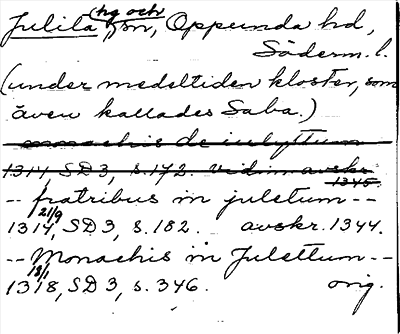 Julita (hg och) sn, Oppunda hd,
Söderm. l.
(under medeltiden kloster, som
även kallades Saba.)
-- monachis de iulyttum
1314, SD 3, s. 172. vidim avskr.
1345.
-- fratribus in juletum --
1314 21/9, SD 3, s. 182. avskr. 1344.
-- Monachis in Julettum --
1318 18/1, SD 3, s. 346. orig.